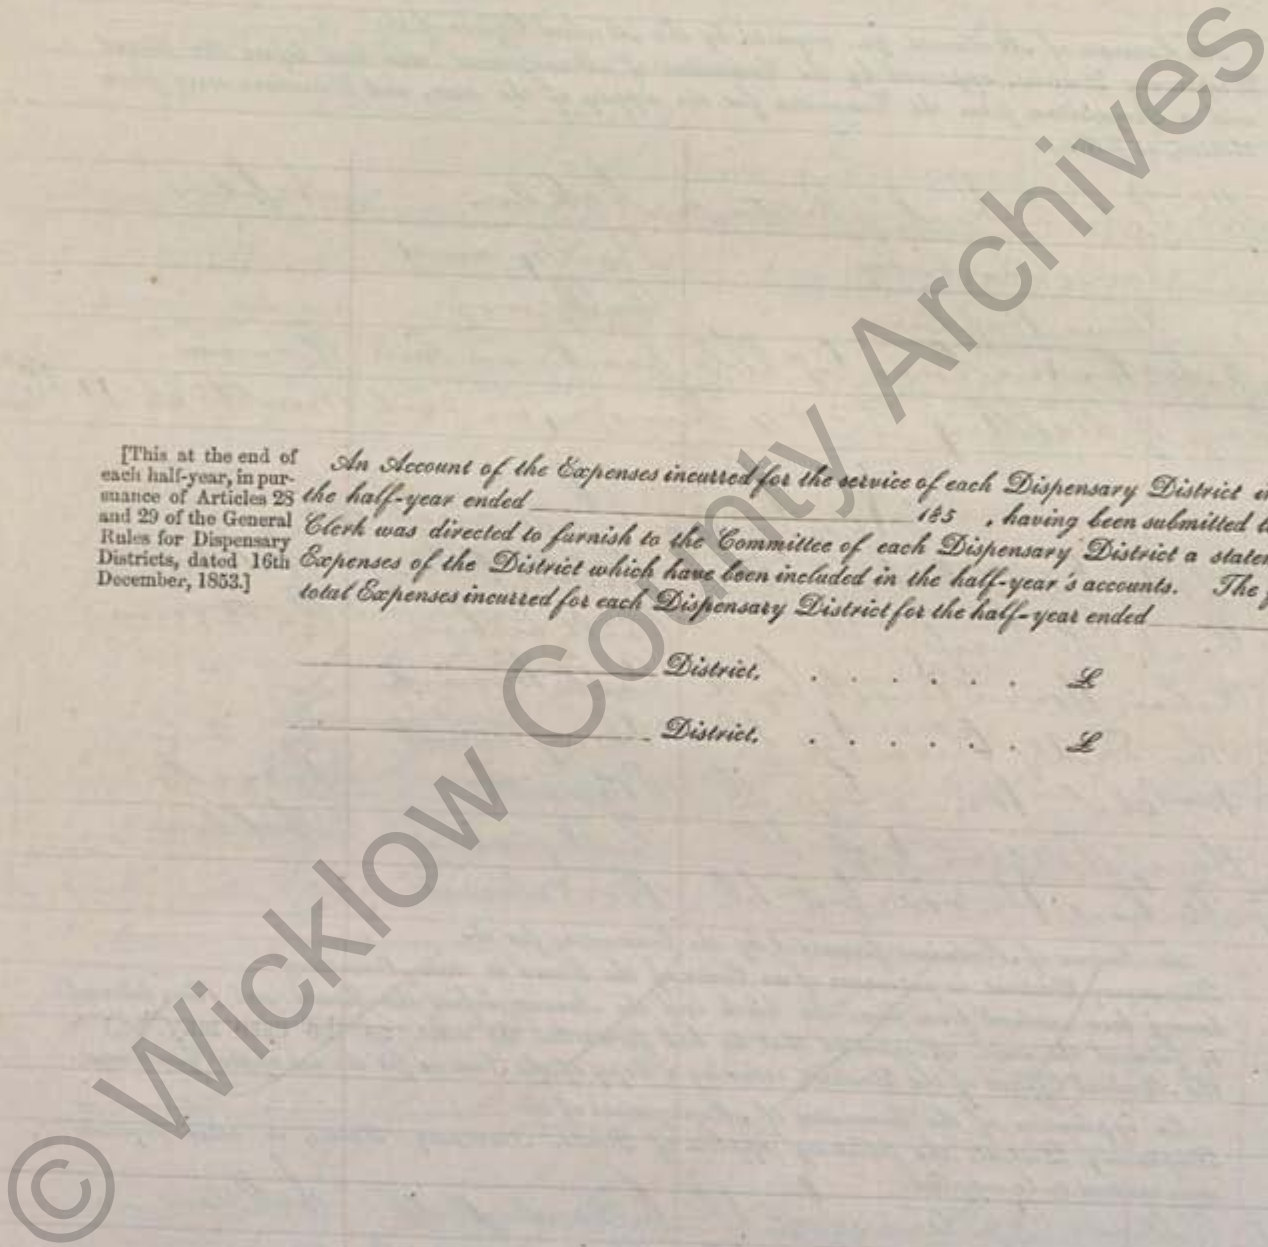 [This at the end of
each half-year, in pur-
suance of Articles 28
and 29 of the General
Rules for Dispensary
Districts, dated 16th
December, 1853.]
An Account of the Expenses incurred for the service of each Dispensary District i
the half-year ended 185 , having been submitted t
Clerk was directed to furnish to the Committee of each Dispensary District a staten
Expenses of the District which have been included in the half-year's accounts. The
total Expenses incurred for each Dispensary District for the half-year ended
District, . . . . . . £
District, . . . . . . £
© Wicklow County Archives